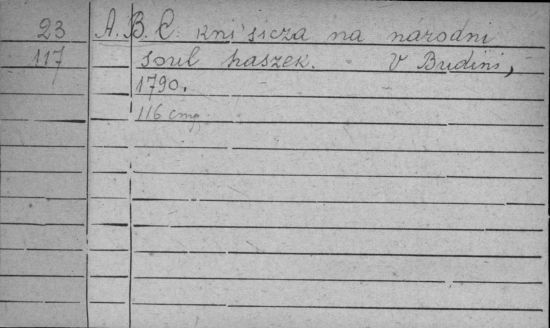 23 A. B. C. knisicza na národni
117 soul haszek. V Budini,
1790.
116